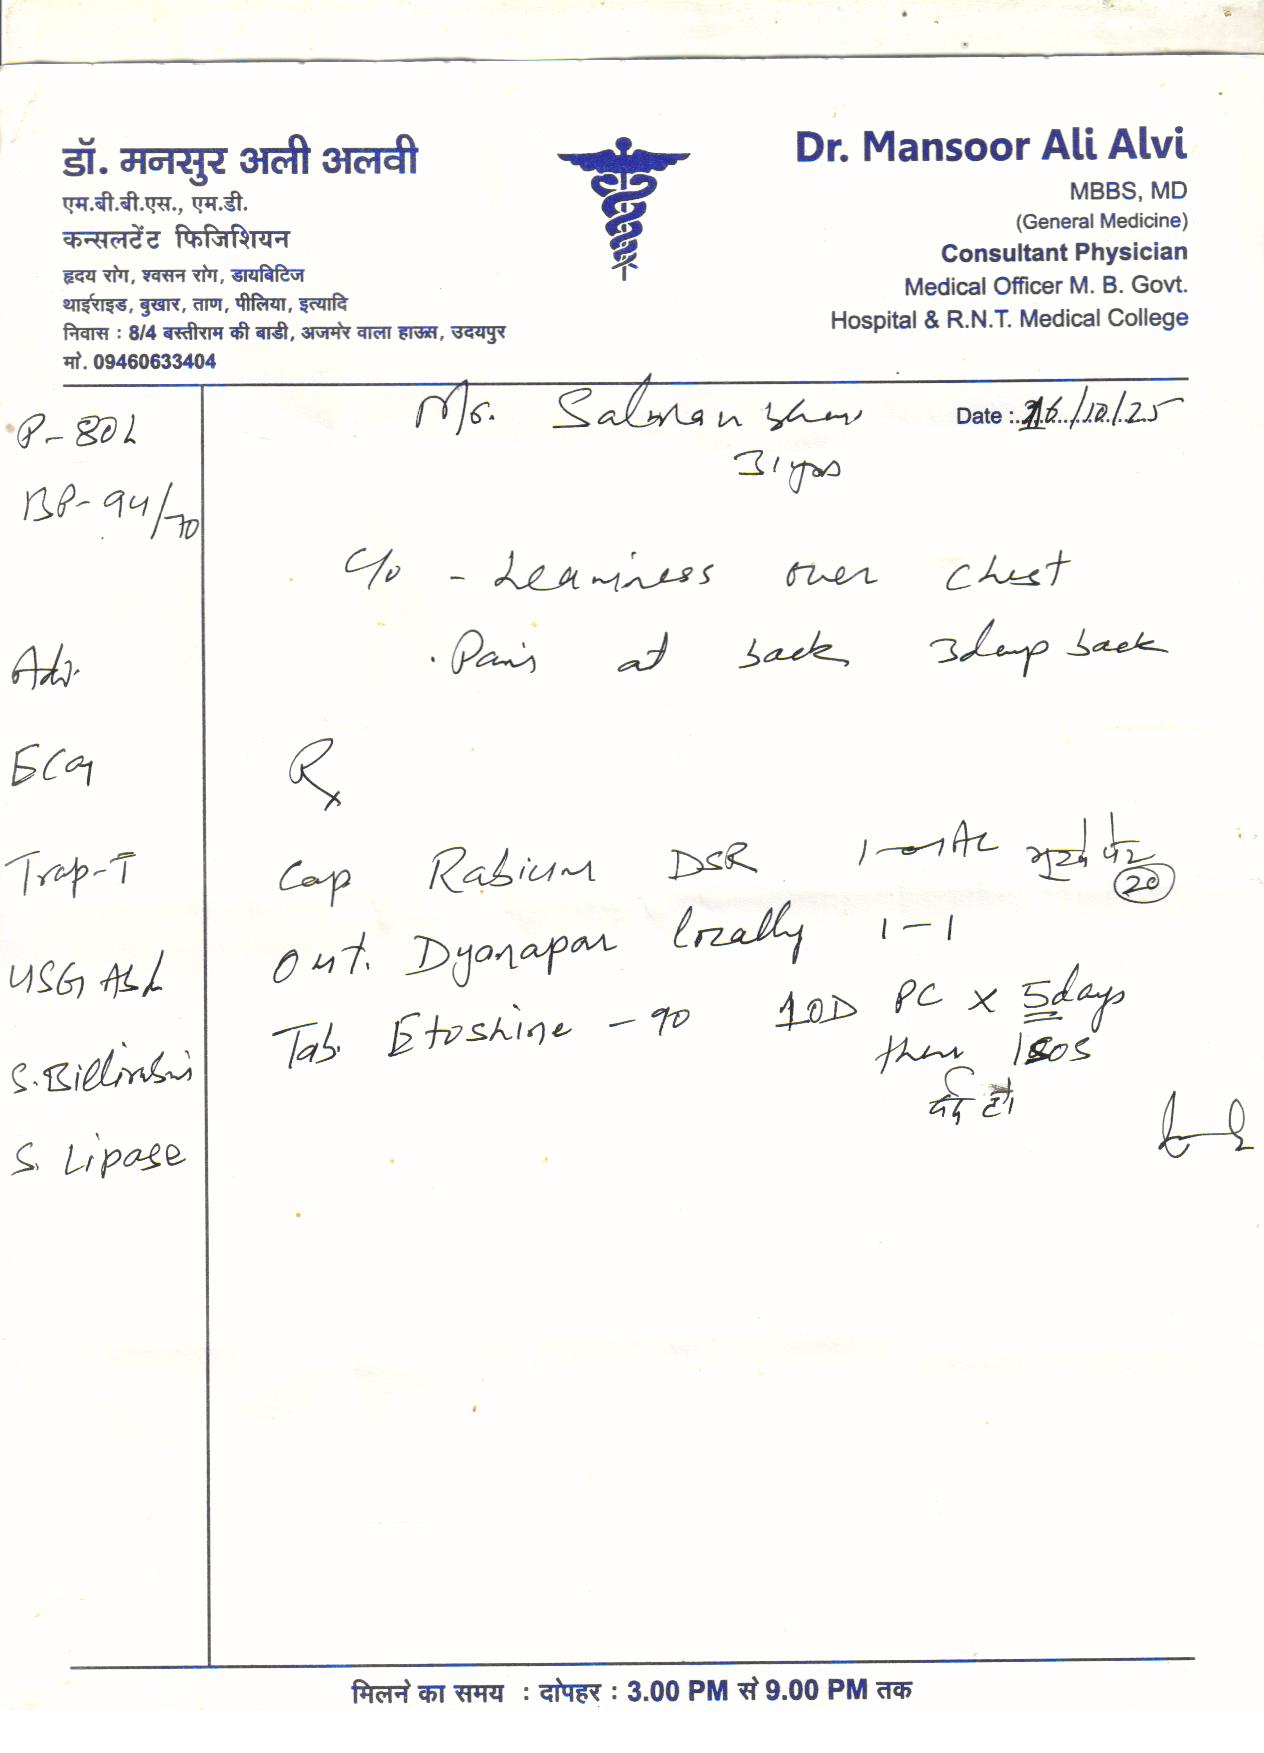 डॉ. मनसुर अली अलवी
एम.बी.बी.एस., एम.डी.
कन्सलटेंट फिजिशियन
हृदय रोग, श्वसन रोग, डायबिटिज
थाईराइड, बुखार, ताण, पीलिया, इत्यादि
निवास : 8/4 बस्तीराम की बाडी, अजमेर वाला हाऊस, उदयपुर
मो. 09460633404
Dr. Mansoor Ali Alvi
MBBS, MD
(General Medicine)
Consultant Physician
Medical Officer M. B. Govt.
Hospital & R.N.T. Medical College
Mr. Salman
Date : 16/10/25
31 yrs
P-80
BP-94/70
Adv.
ECG
Trop-T
USG Abd
S. Billirubin
S. Lipase
C/o - Heaviness over chest
. Pain at back 3days back
Rx
Cap Rabium DSR 1-0-1 AC भूखे पेट
20
Ont. Dyanapar locally 1-1
Tab. Etoshine-90 1OD PC x 5days
then 1SOS
दर्द हो
मिलने का समय : दोपहर : 3.00 PM से 9.00 PM तक